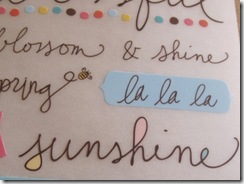 blossom & shine
spring la la la
sunshine